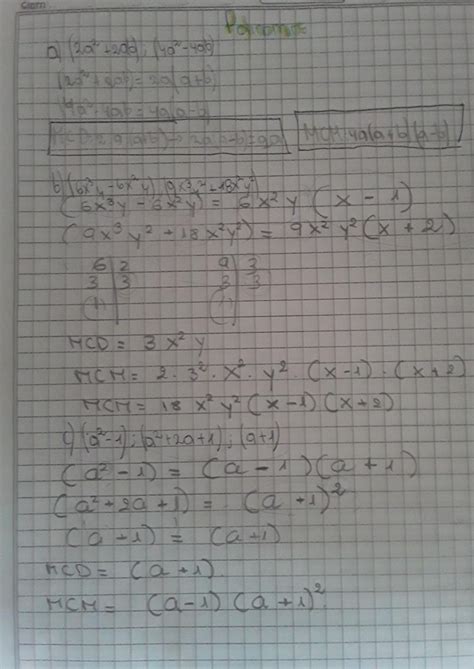 a) (2a²+2ab); (4a²-4ab)
(2a²+2ab) = 2a(a+b)
(4a²-4ab) = 4a(a-b)
MCM: 4a(a+b)(a-b)
b) (6x³y-6x²y); (9x³y²+18x²y²)
(6x³y - 6x²y) = 6x²y (x - 1)
(9x³y² + 18x²y²) = 9x²y² (x + 2)
6 | 2 9 | 3
3 | 3 3 | 3
(1) | (1) |
MCD = 3x²y
MCM = 2 · 3² · x² · y² · (x-1) · (x+2)
MCM = 18x²y² (x-1) (x+2)
c) (a²-1); (a²+2a+1); (a+1)
(a²-1) = (a-1)(a+1)
(a²+2a+1) = (a+1)²
(a+1) = (a+1)
MCD = (a+1)
MCM = (a-1) (a+1)²